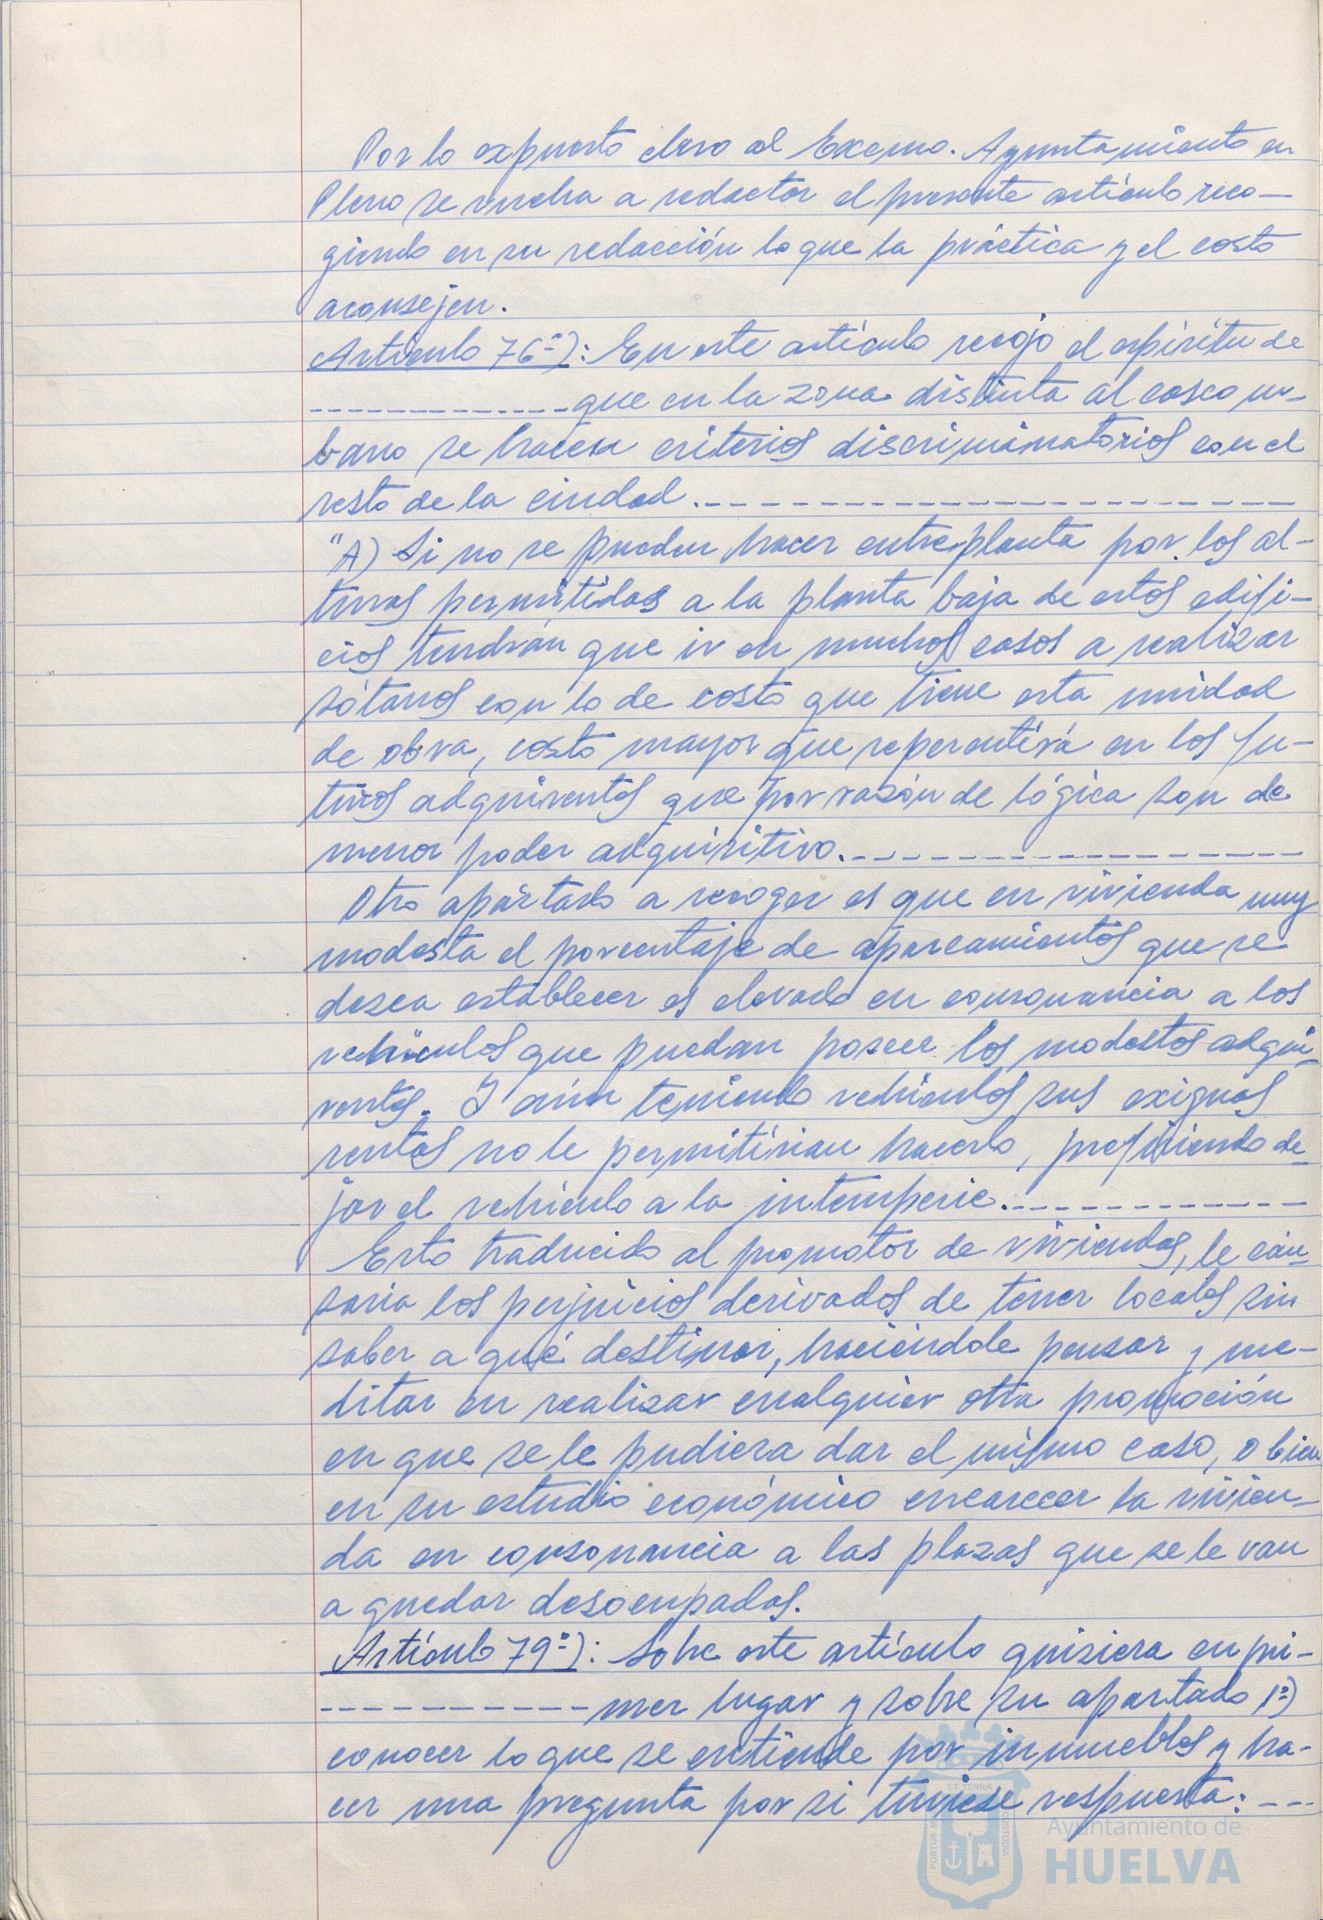 Por lo expuesto elevo al Excmo. Ayuntamiento en
Pleno se vuelva a redactar el presente artículo reco-
giendo en su redacción lo que la práctica y el costo
aconsejen.
Artículo 76º): En este artículo recojo el espíritu de
------------ que en la zona distinta al casco ur-
bano se hacen criterios discriminatorios con el
resto de la ciudad.
"A) Si no se pueden hacer entreplanta por los al-
turas permitidas a la planta baja de estos edifi-
cios tendrán que ir en muchos casos a realizar
sótanos con lo de costo que tiene esta unidad
de obra, costo mayor que repercutirá en los fu-
turos adquirentes que por razón de lógica son de
menor poder adquisitivo.
Otro apartado a recoger es que en vivienda muy
modesta el porcentaje de aparcamientos que se
desea establecer es elevado en consonancia a los
vehículos que puedan poseer los modestos adqui-
rentes. Y aún teniendo vehículos sus exiguas
rentas no le permitirían hacerlo, prefiriendo de-
jar el vehículo a la intemperie.
Esto traducido al promotor de viviendas, le cau-
saría los perjuicios derivados de tener locales sin
saber a qué destinar, haciéndole pensar y me-
ditar en realizar cualquier otra promoción
en que se le pudiera dar el mismo caso, o bien
en su estudio económico encarecer la vivien-
da en consonancia a las plazas que se le van
a quedar desocupadas.
Artículo 79º): Sobre este artículo quisiera en pri-
------------ mer lugar y sobre su apartado 1º)
conocer lo que se entiende por inmuebles y ha-
cer una pregunta por si tuviese respuesta: ---
Ayuntamiento de
HUELVA